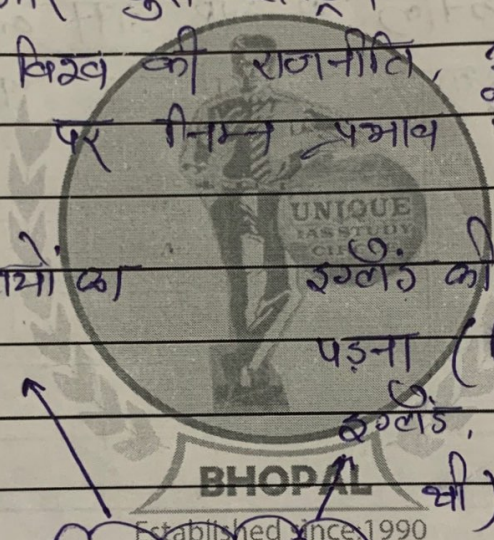 विश्व की राजनीति,
पर निम्न प्रभाव
UNIQUE
IAS STUDY
CIRCLE
यों का इंग्लैंड की
पड़ना (
इंग्लैंड,
BHOPAL
थी)
Established since 1990